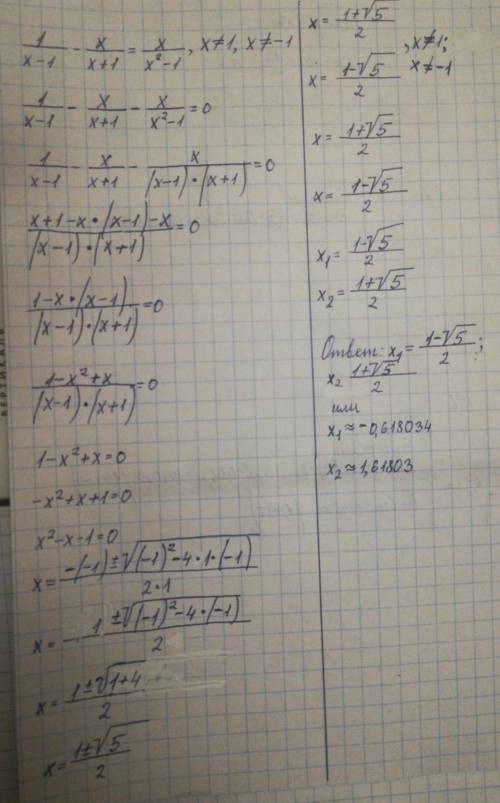 1/(x-1) - x/(x+1) = x/(x²-1), x≠1, x≠-1
1/(x-1) - x/(x+1) - x/(x²-1) = 0
1/(x-1) - x/(x+1) - x/((x-1)·(x+1)) = 0
(x+1-x·(x-1)-x)/((x-1)·(x+1)) = 0
(1-x·(x-1))/((x-1)·(x+1)) = 0
(1-x²+x)/((x-1)·(x+1)) = 0
1-x²+x=0
-x²+x+1=0
x²-x-1=0
x = (-(-1)±√((-1)²-4·1·(-1)))/(2·1)
x = (1±√((-1)²-4·(-1)))/2
x = (1±√(1+4))/2
x = (1±√5)/2
x = (1+√5)/2
x = (1-√5)/2 , x≠1; x≠-1
x = (1+√5)/2
x = (1-√5)/2
x₁ = (1-√5)/2
x₂ = (1+√5)/2
Ответ: x₁ = (1-√5)/2;
x₂ (1+√5)/2
или
x₁ ≈ -0,618034
x₂ ≈ 1,61803